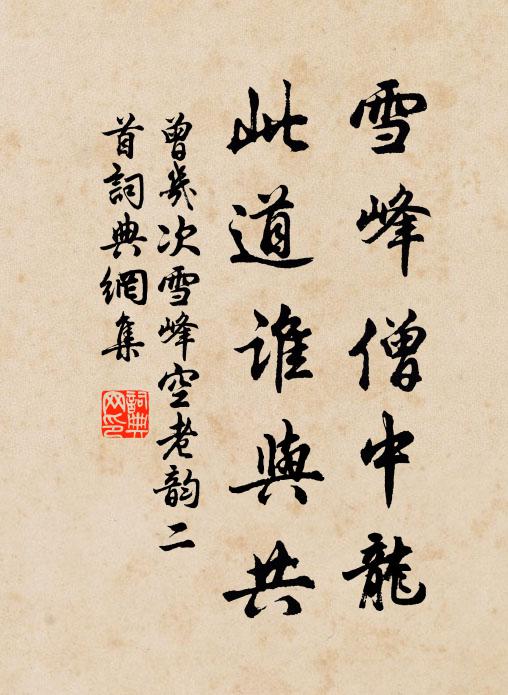 雪峰僧中龍
此道誰與共
曾幾次雪峰空老韵二
首詞典網集
詞典
网印